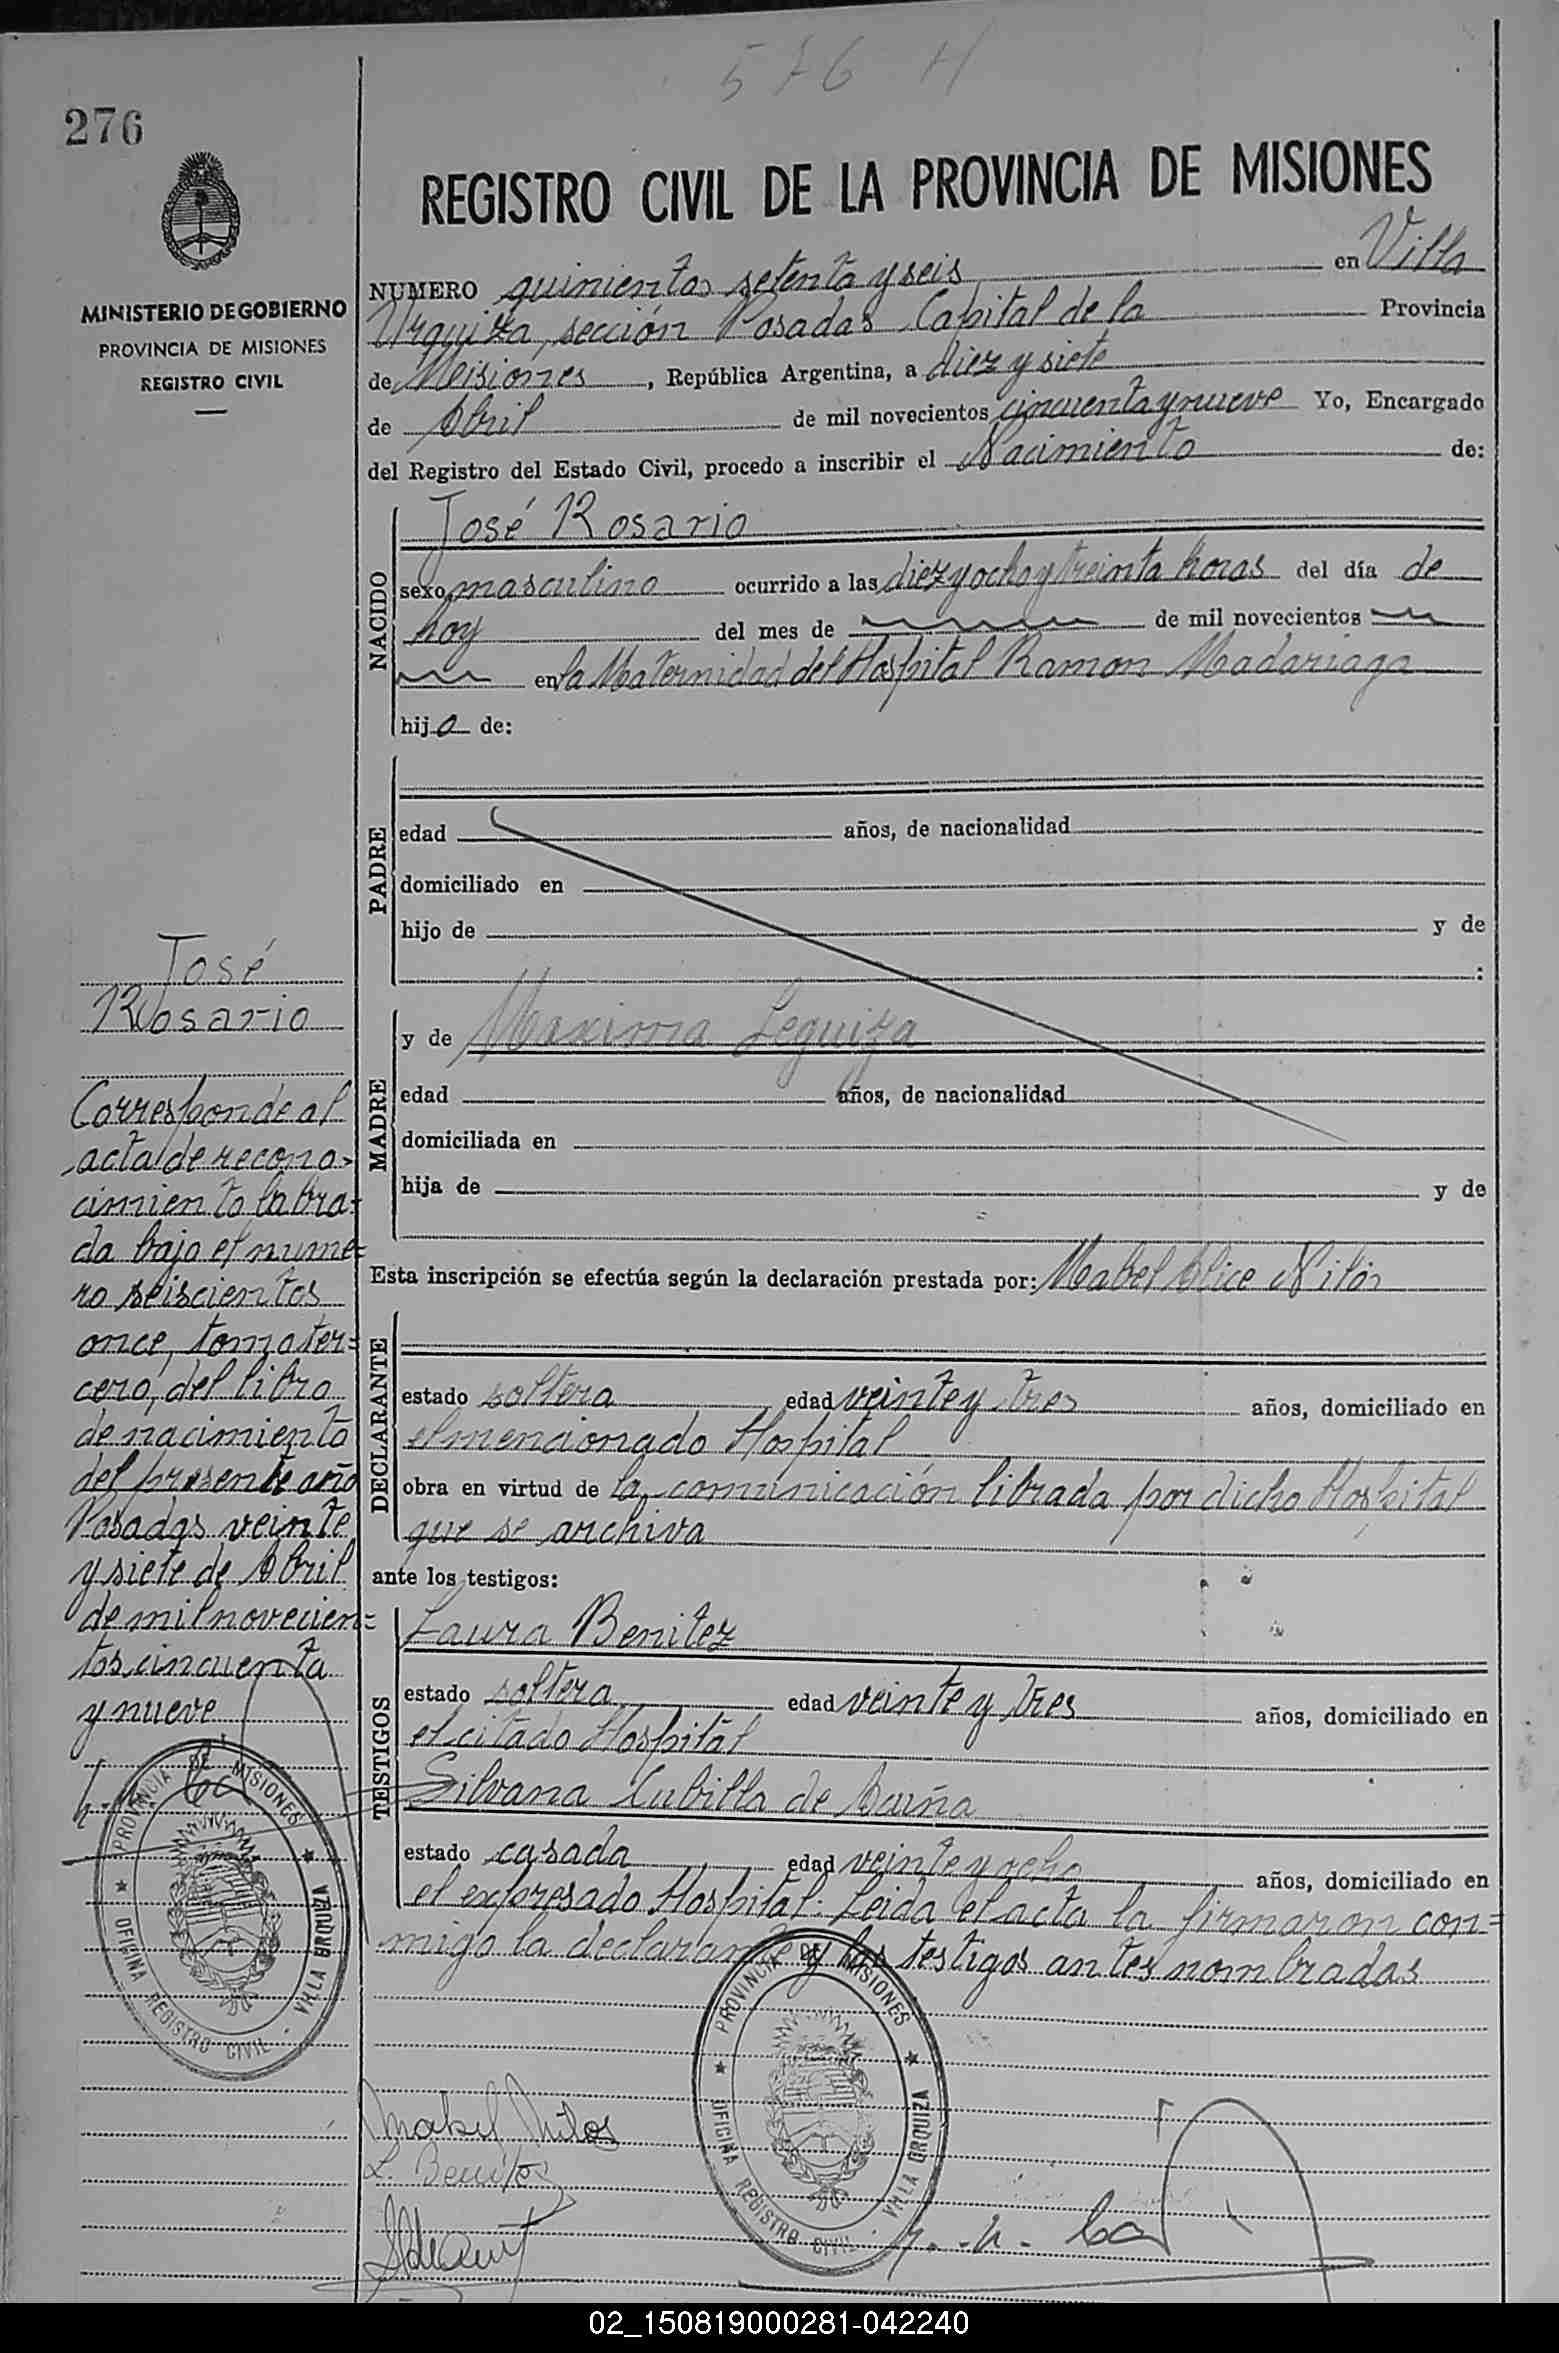 576 H
276
REGISTRO CIVIL DE LA PROVINCIA DE MISIONES
MINISTERIO DE GOBIERNO
PROVINCIA DE MISIONES
REGISTRO CIVIL
NUMERO quinientos setenta y seis en Villa
Urquiza, sección Posadas Capital de la Provincia
de Misiones, República Argentina, a diez y siete
de Abril de mil novecientos cincuenta y nueve Yo, Encargado
del Registro del Estado Civil, procedo a inscribir el Nacimiento de:
NACIDO
José Rosario
sexo masculino ocurrido a las diez y ocho y treinta horas del día de
hoy del mes de de mil novecientos
en la Maternidad del Hospital Ramon Madariaga
hijo de:
PADRE
edad años, de nacionalidad
domiciliado en
hijo de y de
:
MADRE
y de Maxima Leguiza
edad años, de nacionalidad
domiciliada en
hija de y de
Esta inscripción se efectúa según la declaración prestada por: Mabel Alice Nilos
DECLARANTE
estado soltera edad veinte y tres años, domiciliado en
el mencionado Hospital
obra en virtud de la comunicación librada por dicho Hospital
que se archiva
ante los testigos:
TESTIGOS
Laura Benitez
estado soltera edad veinte y tres años, domiciliado en
el citado Hospital
Silvana Cubilla de Acuña
estado casada edad veinte y ocho años, domiciliado en
el expresado Hospital: Leida el acta la firmaron con=
migo la declarante y las testigos antes nombradas
José
Rosario
Corresponde al
acta de recono-
cimiento labra-
da bajo el nume=
ro seiscientos
once, tomo ter=
cero, del libro
de nacimiento
del presente año
Posadas veinte
y siete de Abril
de mil novecien=
tos cincuenta
y nueve
PROVINCIA DE MISIONES
OFICINA REGISTRO CIVIL · VILLA URQUIZA
PROVINCIA DE MISIONES
OFICINA REGISTRO CIVIL · VILLA URQUIZA
Mabel Nilos
L. Benitez
02_150819000281-042240